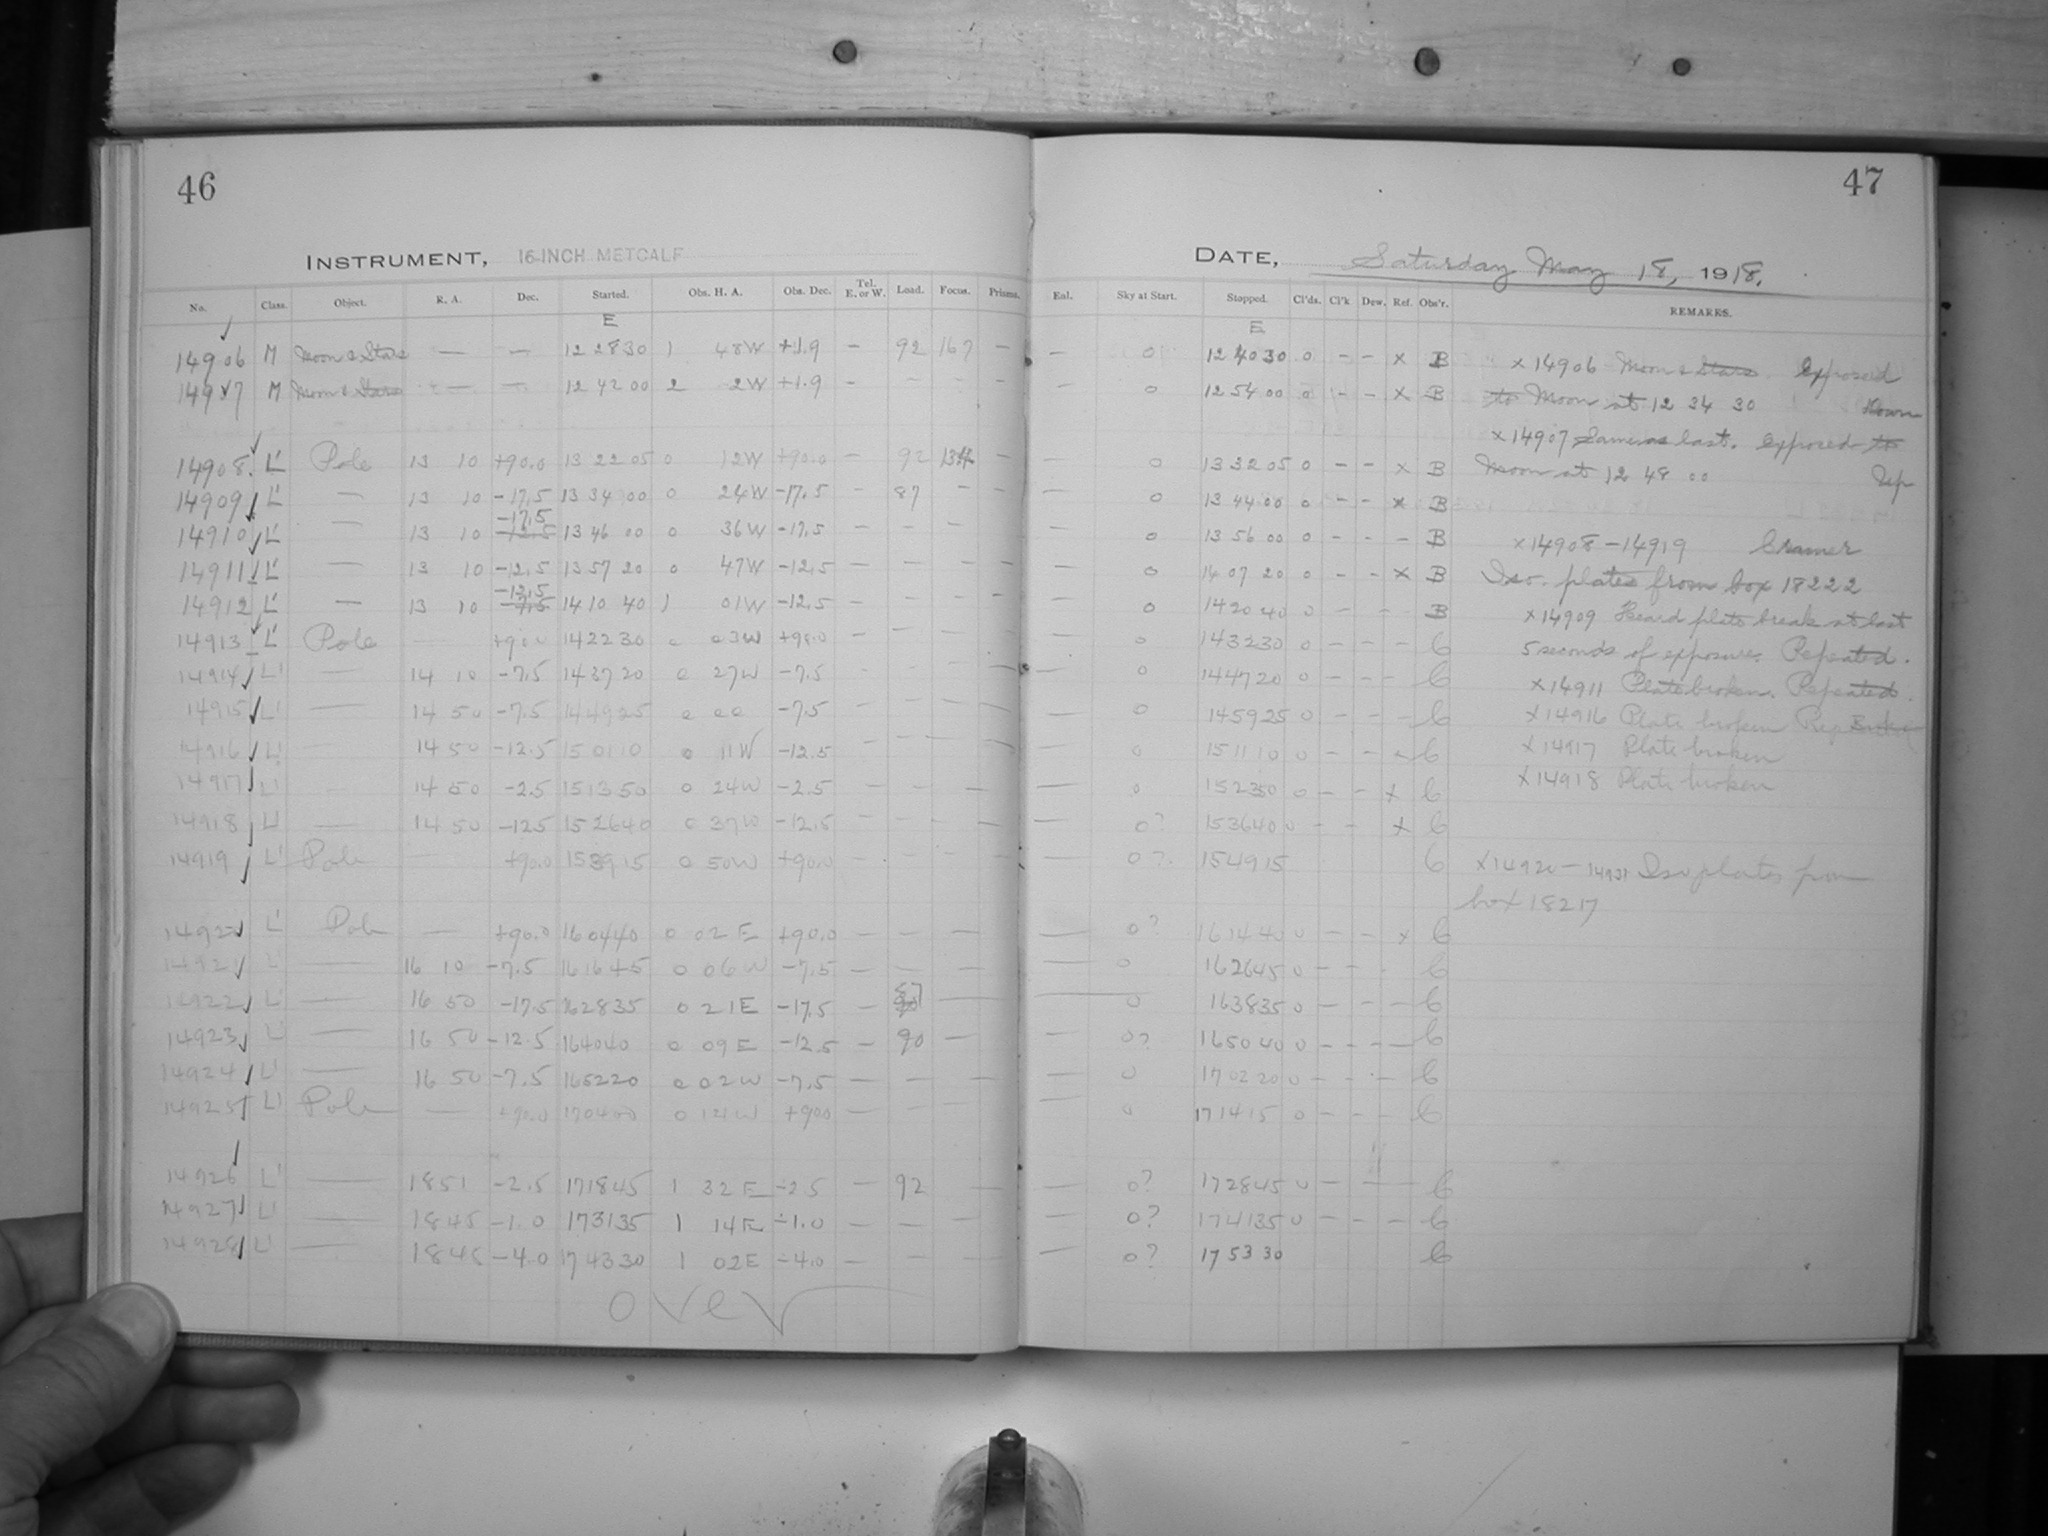 46
47
INSTRUMENT, 16-INCH METCALF
DATE, Saturday May 18, 1918.
No. Class. Object. R. A. Dec. Started. Obs. H. A. Obs. Dec. Tel. E. or W. Load. Focus. Prisms. Enl. Sky at Start. Stopped. Cl'ds. Cl'k Dew. Ref. Obs'r. REMARKS.
E E
14906 M Moon & Stars — — 12 28 30 1 48W +1.9 – 92 167 – — 0 12 40 30 0 – – x B
14907 M Moon & Stars — — 12 42 00 2 2W +1.9 – – – – — 0 12 54 00 0 – – x B
14908 L' Pole 13 10 +90.0 13 22 05 0 12W +90.0 – 92 – — 0 13 32 05 0 – – x B
14909 L' — 13 10 -17.5 13 34 00 0 24W -17.5 – 87 – – — 0 13 44 00 0 – – x B
-17.5
14910 L' — 13 10 -12.5 13 46 00 0 36W -17.5 – – – – — 0 13 56 00 0 – – – B
14911 L' — 13 10 -12.5 13 57 20 0 47W -12.5 – – – – — 0 14 07 20 0 – – x B
-12.5
14912 L' — 13 10 -7.5 14 10 40 1 01W -12.5 – – – – — 0 14 20 40 0 – – B
14913 L' Pole — +90.0 14 22 30 0 03W +90.0 – – – – — 0 14 32 30 0 – – – C
14914 L' — 14 10 -7.5 14 37 20 0 27W -7.5 – – – – — 0 14 47 20 0 – – – C
14915 L' — 14 50 -7.5 14 49 25 0 00 -7.5 – – – – — 0 14 59 25 0 – – – C
14916 L' — 14 50 -12.5 15 01 10 0 11W -12.5 – – – – — 0 15 11 10 0 – – x C
14917 L' – 14 50 -2.5 15 13 50 0 24W -2.5 – – – – — 0 15 23 50 0 – – x C
14918 L' — 14 50 -12.5 15 26 40 0 37W -12.5 – – – – — 0? 15 36 40 0 – – x C
14919 L' Pole — +90.0 15 39 15 0 50W +90.0 – – – – — 0? 15 49 15 C
14920 L' Pole — +90.0 16 04 40 0 02 E +90.0 – – – – — 0? 16 14 40 0 – – x C
14921 L' — 16 10 -7.5 16 16 45 0 06W -7.5 – – – – — 0 16 26 45 0 – – – C
14922 L' — 16 50 -17.5 16 28 35 0 21E -17.5 – 87 — — 0 16 38 35 0 – – – C
14923 L' — 16 50 -12.5 16 40 40 0 09 E -12.5 – 90 – — 0? 16 50 40 0 – – – C
14924 L' — 16 50 -7.5 16 52 20 0 02W -7.5 – – – – — 0 17 02 20 0 – – – C
14925 L' Pole — +90.0 17 04 00 0 14W +90.0 – – – – — 0 17 14 15 0 – – – C
14926 L' — 18 51 -2.5 17 18 45 1 32 E -2.5 – 92 – — 0? 17 28 45 0 – – – C
14927 L' — 18 45 -1.0 17 31 35 1 14E -1.0 – – – – — 0? 17 41 35 0 – – – C
14928 L' — 18 45 -4.0 17 43 30 1 02E -4.0 – – – – — 0? 17 53 30 C
over
x 14906 Moon & Stars Exposed
to Moon at 12 34 30 Down
x 14907 Same as last. Exposed to
Moon at 12 48 00 Up
x 14908 – 14919 Cramer
Iso. plates from box 18222
x 14909 Heard plate break at last
5 seconds of exposure. Repeated.
x 14911 Plate broken. Repeated.
x 14916 Plate broken
x 14917 Plate broken
x 14918 Plate broken
x 14920 – 14931 Iso plates from
box 18217